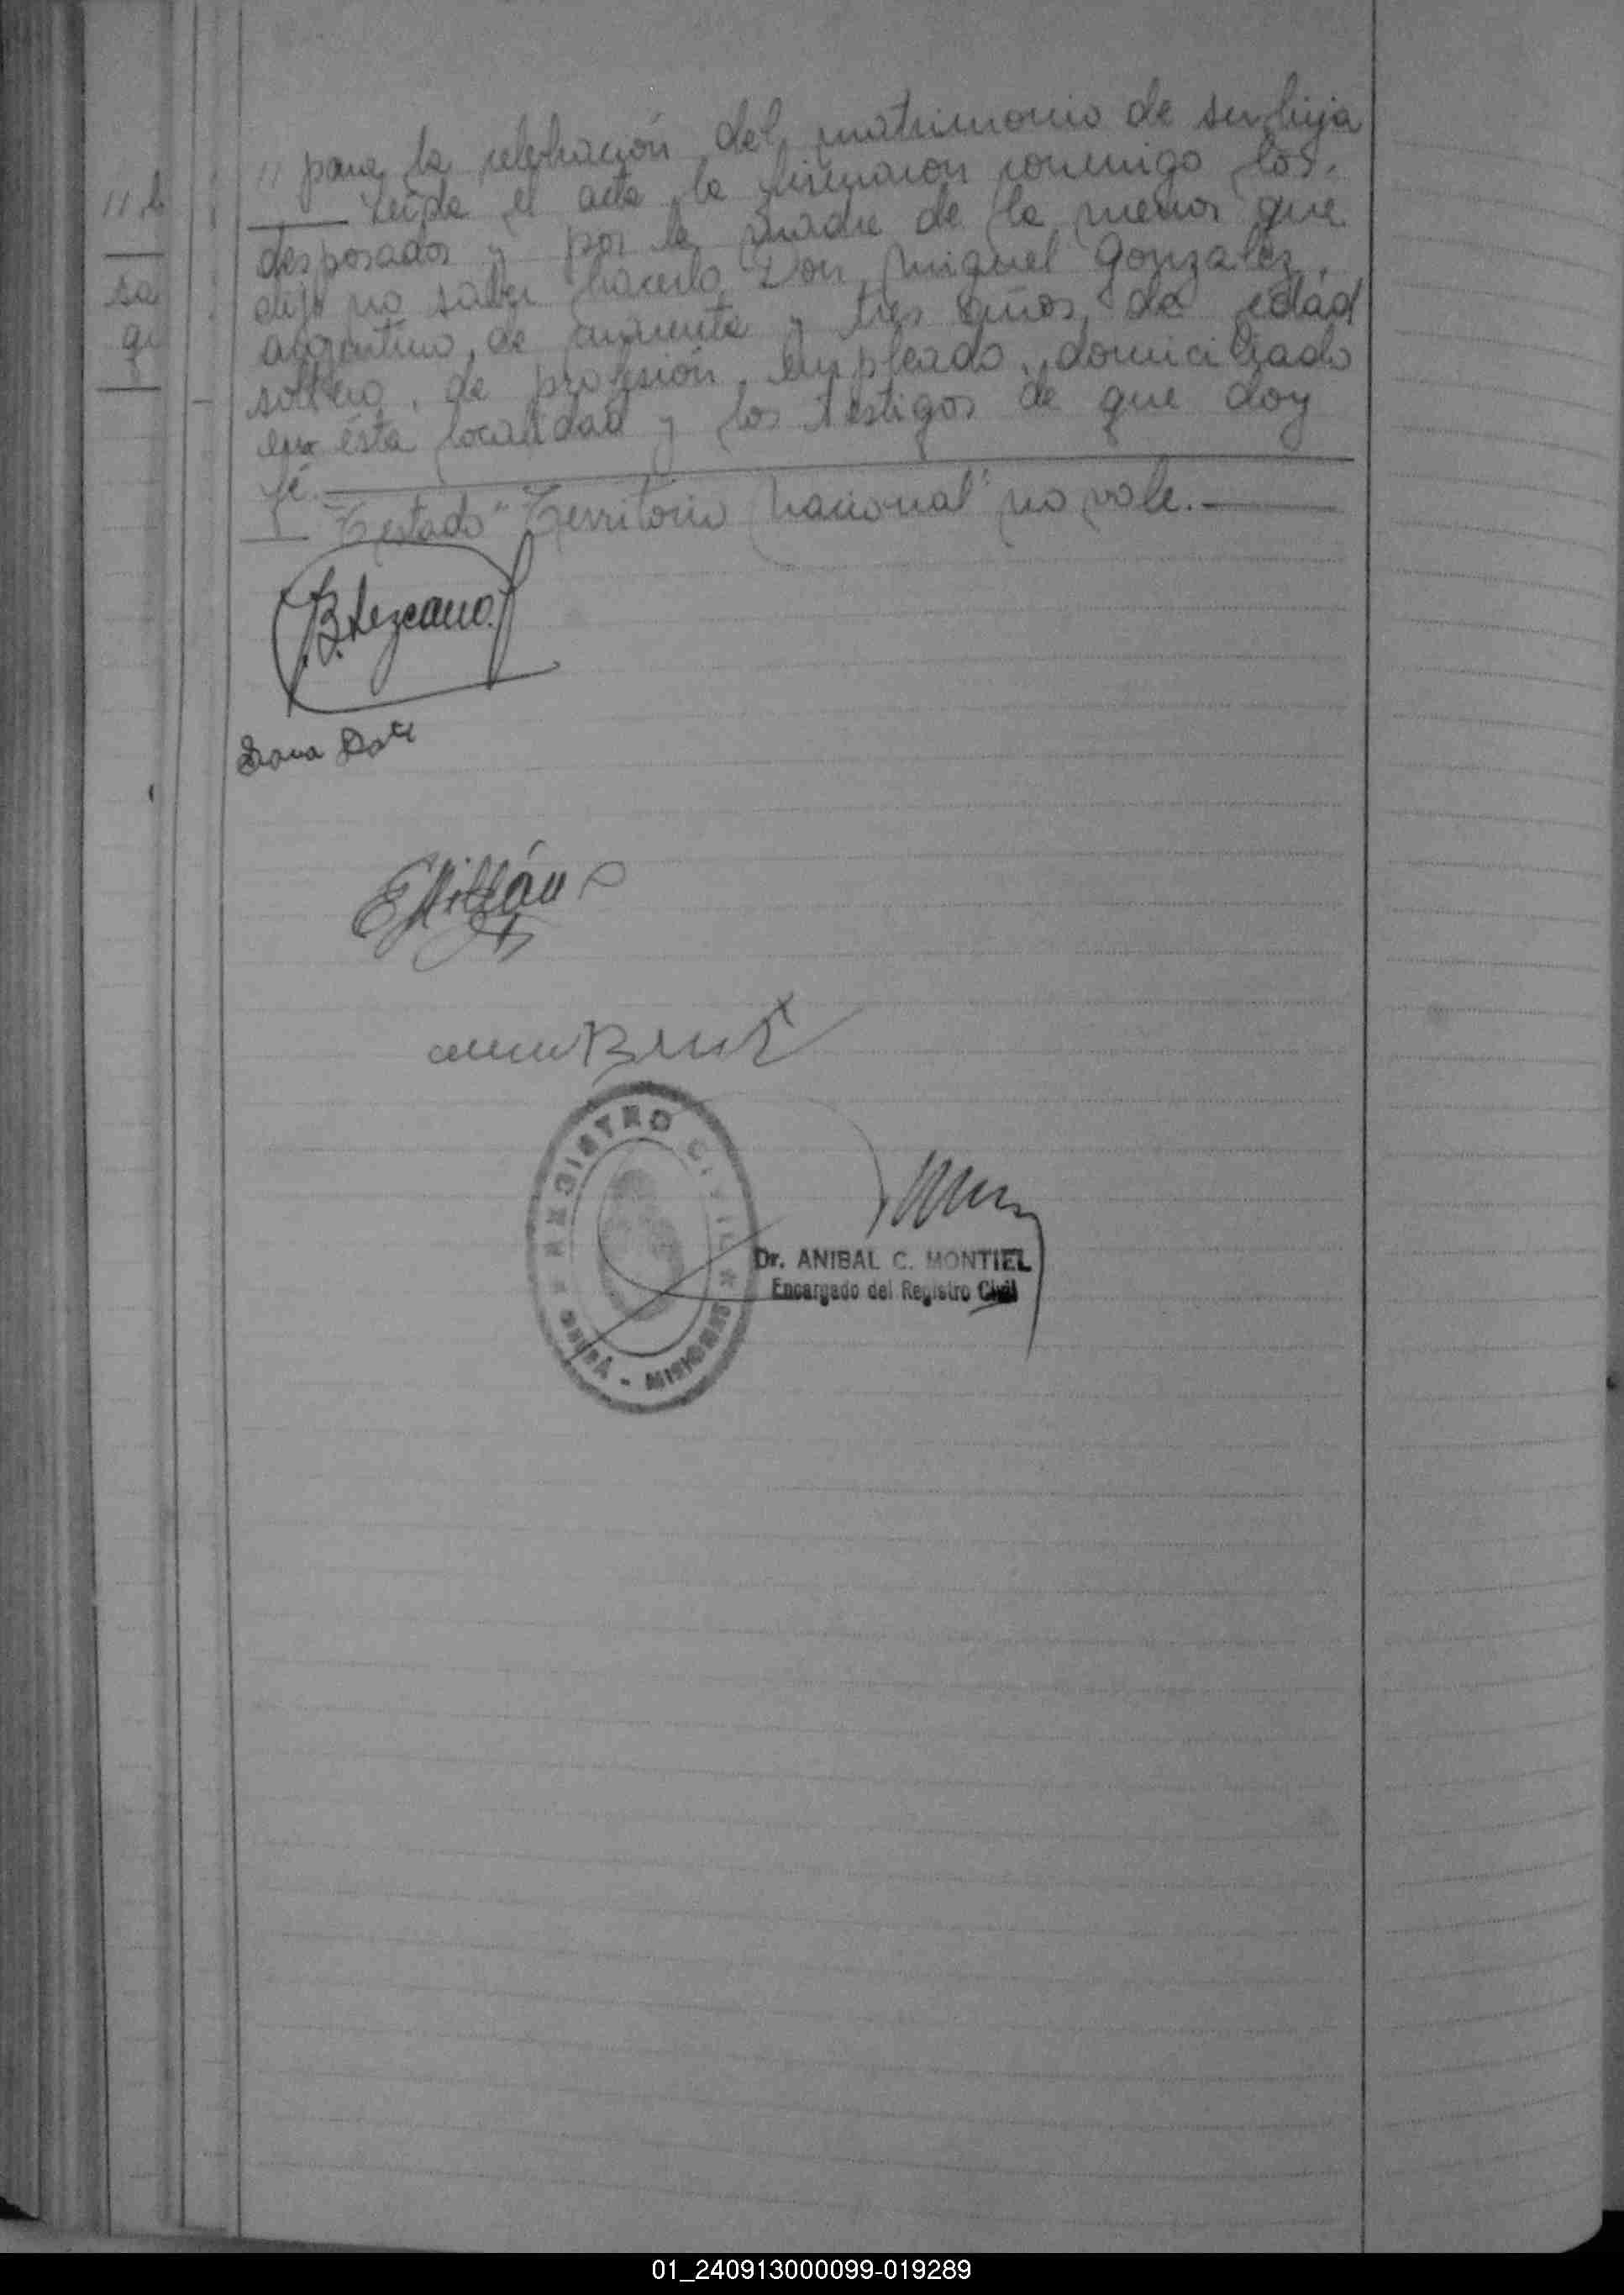 // para la celebración del matrimonio de su hija
Leída el acta la firmaron conmigo los
desposados y por la madre de la menor que
dijo no saber hacerlo Don Miguel Gonzalez,
argentino, de cuarenta y tres años de edad
soltero, de profesión empleado, domiciliado
en ésta localidad y los testigos de que doy
fé.
Testado "Territorio Nacional" no vale.
B. Lezcano
REGISTRO CIVIL
OBERÁ - MISIONES
Dr. ANIBAL C. MONTIEL
Encargado del Registro Civil
01_240913000099-019289